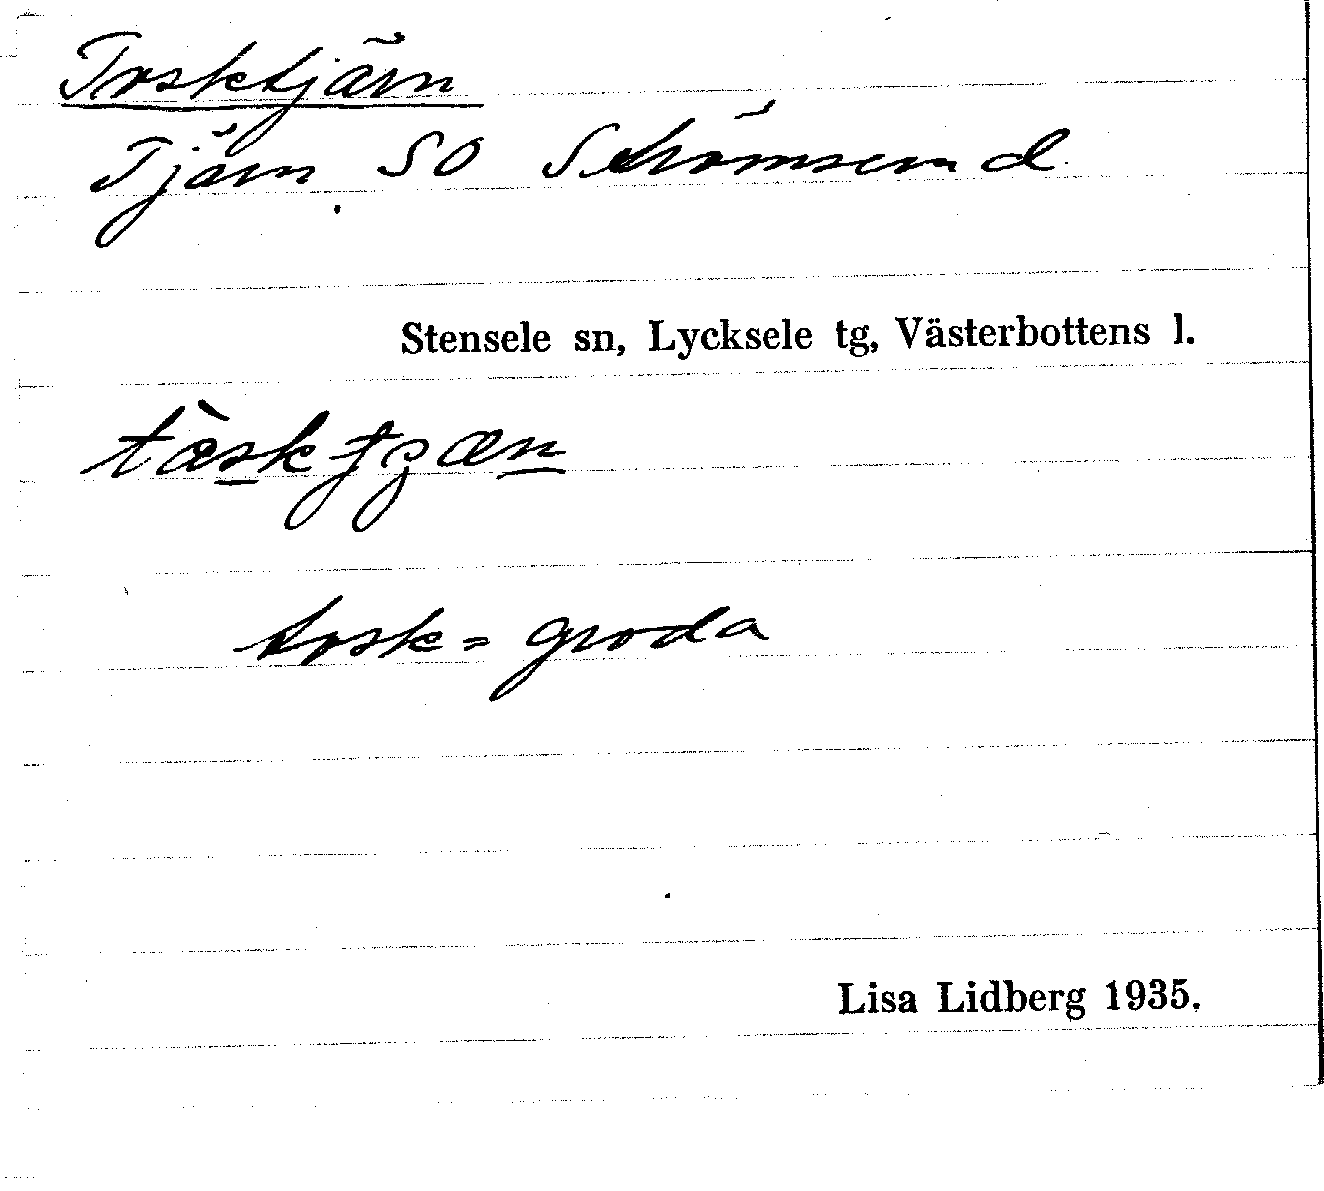 Trsktjärn
Tjärn SO Strömsund
Stensele sn, Lycksele tg, Västerbottens l.
trsk = groda
Lisa Lidberg 1935.